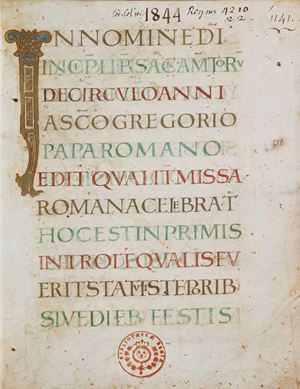 1844
Regius 4230
2.2
1141.
INNOMINEDNI
INCIPLIBSACRAMTORU
DECIRCULOANNI
ASCOGREGORIO
PAPAROMANO
EDITQUALITMISSA
ROMANACELEBRAT
HOCESTINPRIMIS
INTROITQUALISFU
ERITSTATISTEBRIB
SIVEDIEBFESTIS
BIBLIOTHECAE REGIAE